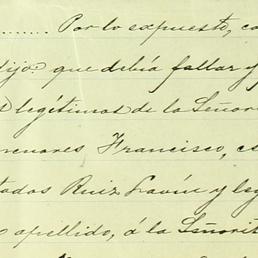 ........ Por lo expuesto, co
dijo: que debía fallar y
legítimas de la Señori
menores Francisco, es
tados Ruiz Lavín y leg
o apellido, á la Señorit